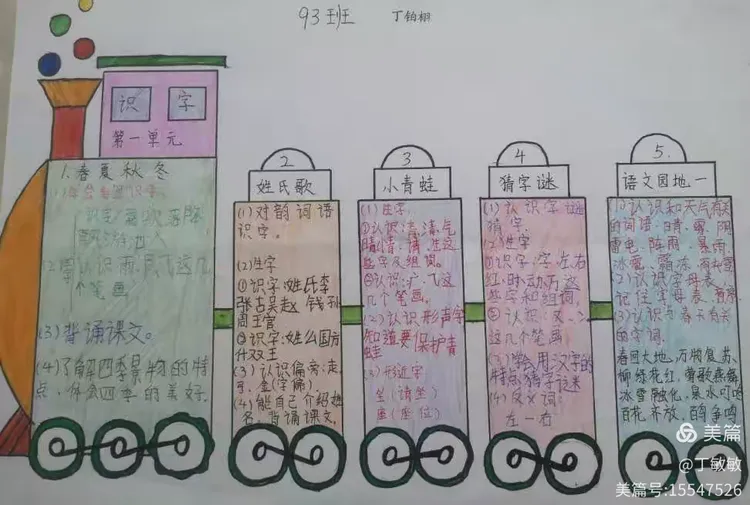 93班 丁铂栩
识字
第一单元
1.春夏秋冬
(3)背诵课文。
(4)了解四季景物的特
点,体会四季的美好。
2
姓氏歌
(1)对韵词语
识字。
(2)生字
①识字:姓氏李
张古吴赵钱孙
周王官
②识字:姓么国方
双王
(3)认识偏旁:走
(4)能自己介绍姓
名,背诵课文。
3
小青蛙
(1)生字
①认识:清、气
晴、情、请、生这
些字及组词。
几个笔画。
(2)认识形声字
知道要保护青
蛙
(3)形近字
坐(请坐)
座(座位)
4
猜字谜
(1)认识字谜
猜字。
(2)生字
①识字:字、左右
红时动万这
些字和组词。
这几个笔画。
(3)学会用汉字的
特点猜字谜
(4)反义词:
左—右
5.
语文园地一
(1)认识和天气有关
的词语:晴、雾、阴
雷电、阵雨、暴雨、
冰雹、霜冻、雨夹雪
(2)认识字母表,
记住字母表、背

的字词。
春回大地、万物复苏、
柳绿花红、莺歌燕舞
冰雪融化、泉水叮咚
百花齐放、百鸟争鸣
美篇
@丁敏敏
美篇号:15547526